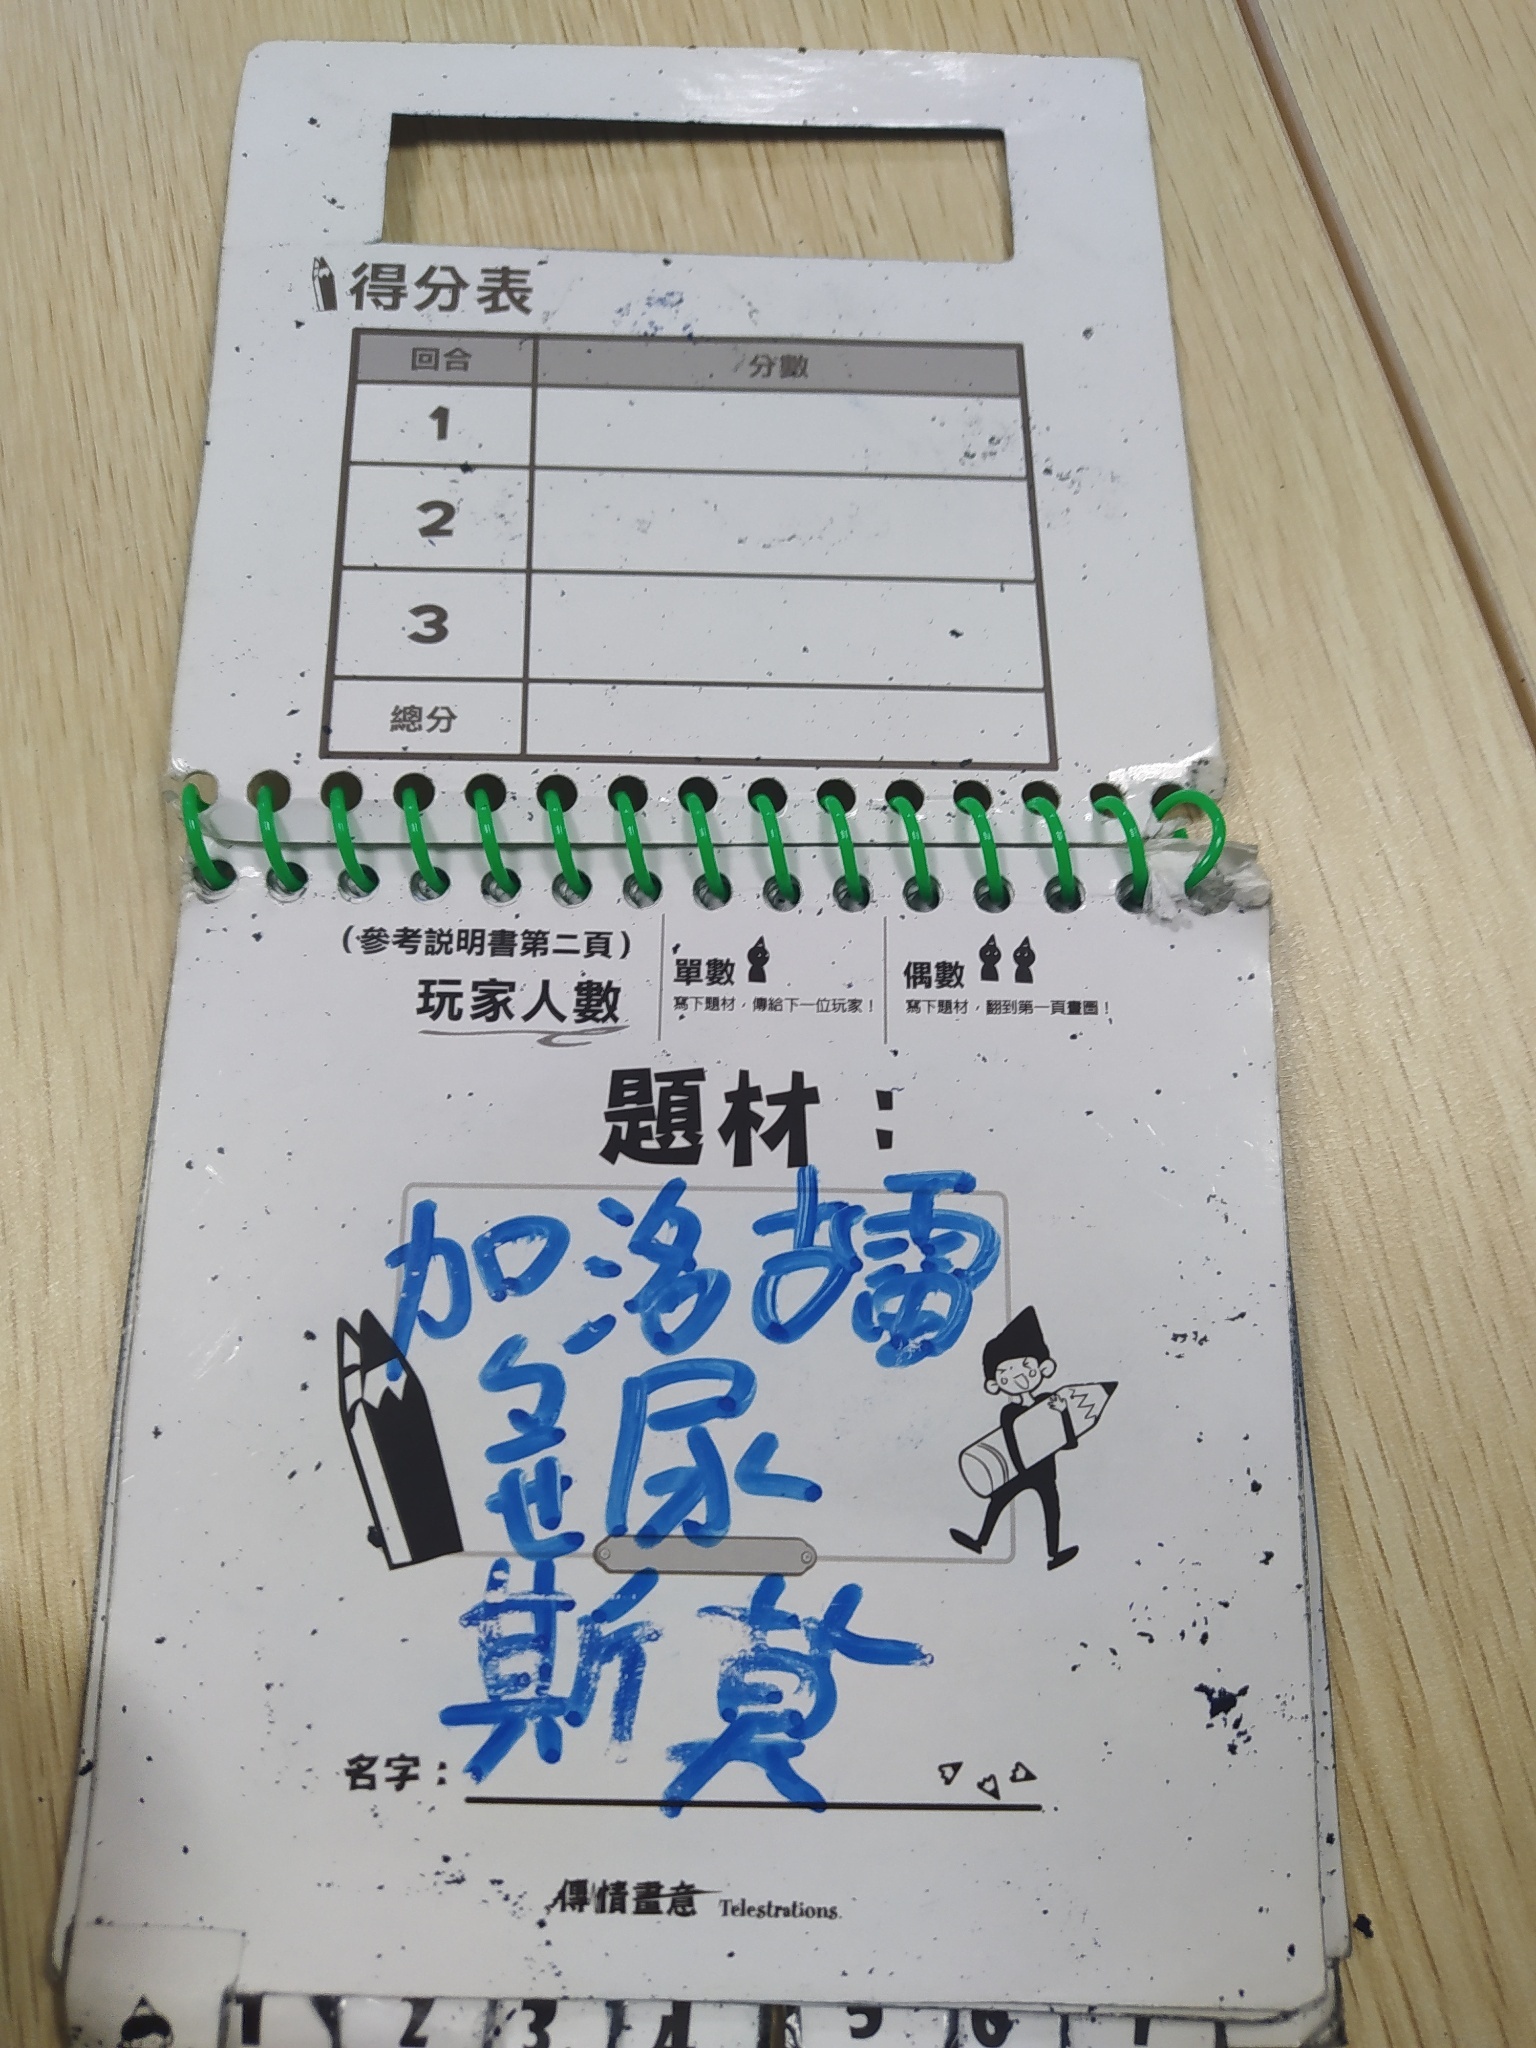 得分表
回合 分數
1
2
3
總分
(參考説明書第二頁)
玩家人數
單數
寫下題材，傳給下一位玩家！
偶數
寫下題材，翻到第一頁畫圖！
題材：
加洛
尿
斯莫
名字：
傳情畫意 Telestrations
1 2 3 4 5 6 7